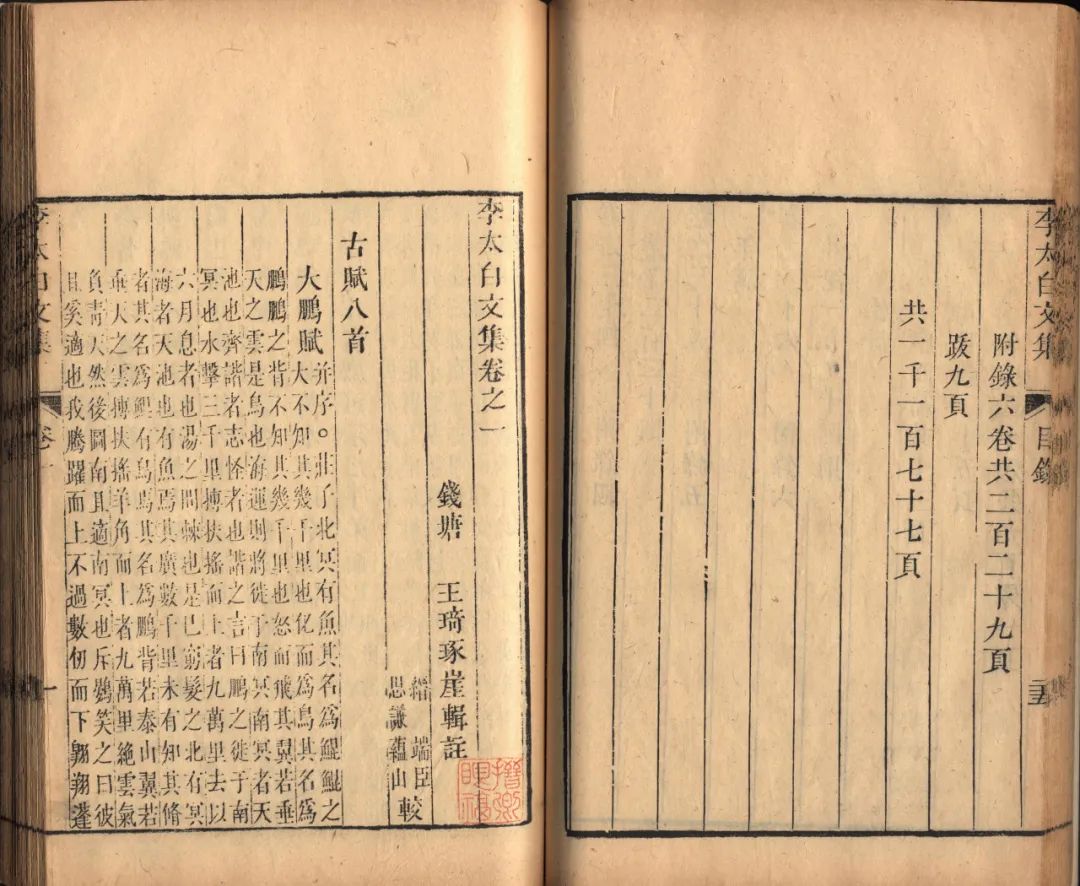 李太白文集
目錄
附錄六卷共二百二十九頁
跋九頁
共一千一百七十七頁
李太白文集卷之一
錢塘 王琦琢崖輯註
縉 端臣
思謙蘊山 較
古賦八首
大鵬賦并序。莊子北冥有魚其名爲鯤鯤之
大不知其幾千里也化而爲鳥其名爲
鵬鵬之背不知其幾千里也怒而飛其翼若垂
天之雲是鳥也海運則將徙于南冥南冥者天
池也齊諧者志怪者也諧之言曰鵬之徙于南
冥也水擊三千里摶扶搖而上者九萬里去以
六月息者也湯之問棘也是已窮髮之北有冥
海者天池也有魚焉其廣數千里未有知其修
者其名爲鯤有鳥焉其名爲鵬背若泰山翼若
垂天之雲摶扶搖羊角而上者九萬里絕雲氣
負靑天然後圖南且適南冥也斥鷃笑之曰彼
且奚適也我騰躍而上不過數仞而下翱翔蓬
李太白文集
卷一